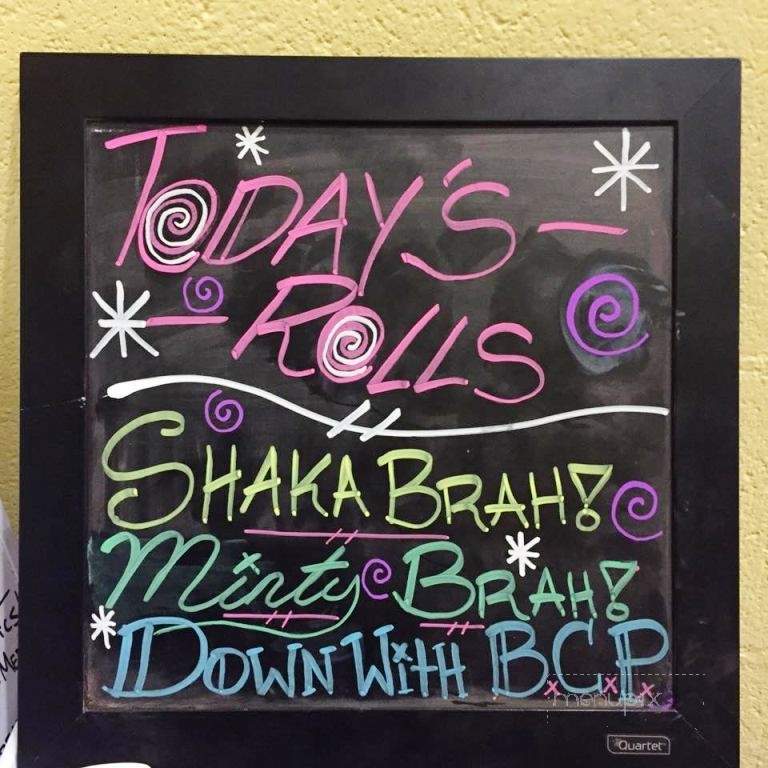 TODAY'S —
— ROLLS
SHAKA BRAH!
Minty BRAH!
DOWN WITH B.C.P
menupix
Quartet